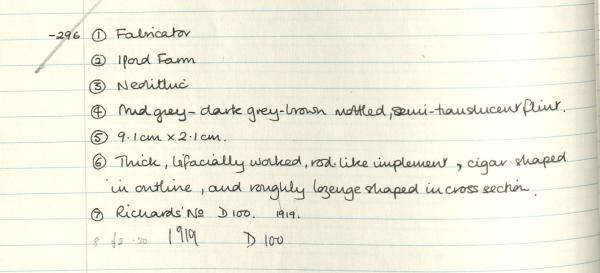 -296 ① Fabricator
② Ipord Farm
③ Neolithic
④ Mid grey - dark grey-brown mottled, semi-translucent flint.
⑤ 9.1cm x 2.1cm.
⑥ Thick, bifacially worked, rod-like implement, cigar-shaped
in outline, and roughly lozenge shaped in cross section.
⑦ Richards' No D100. 1919.
1919 D100